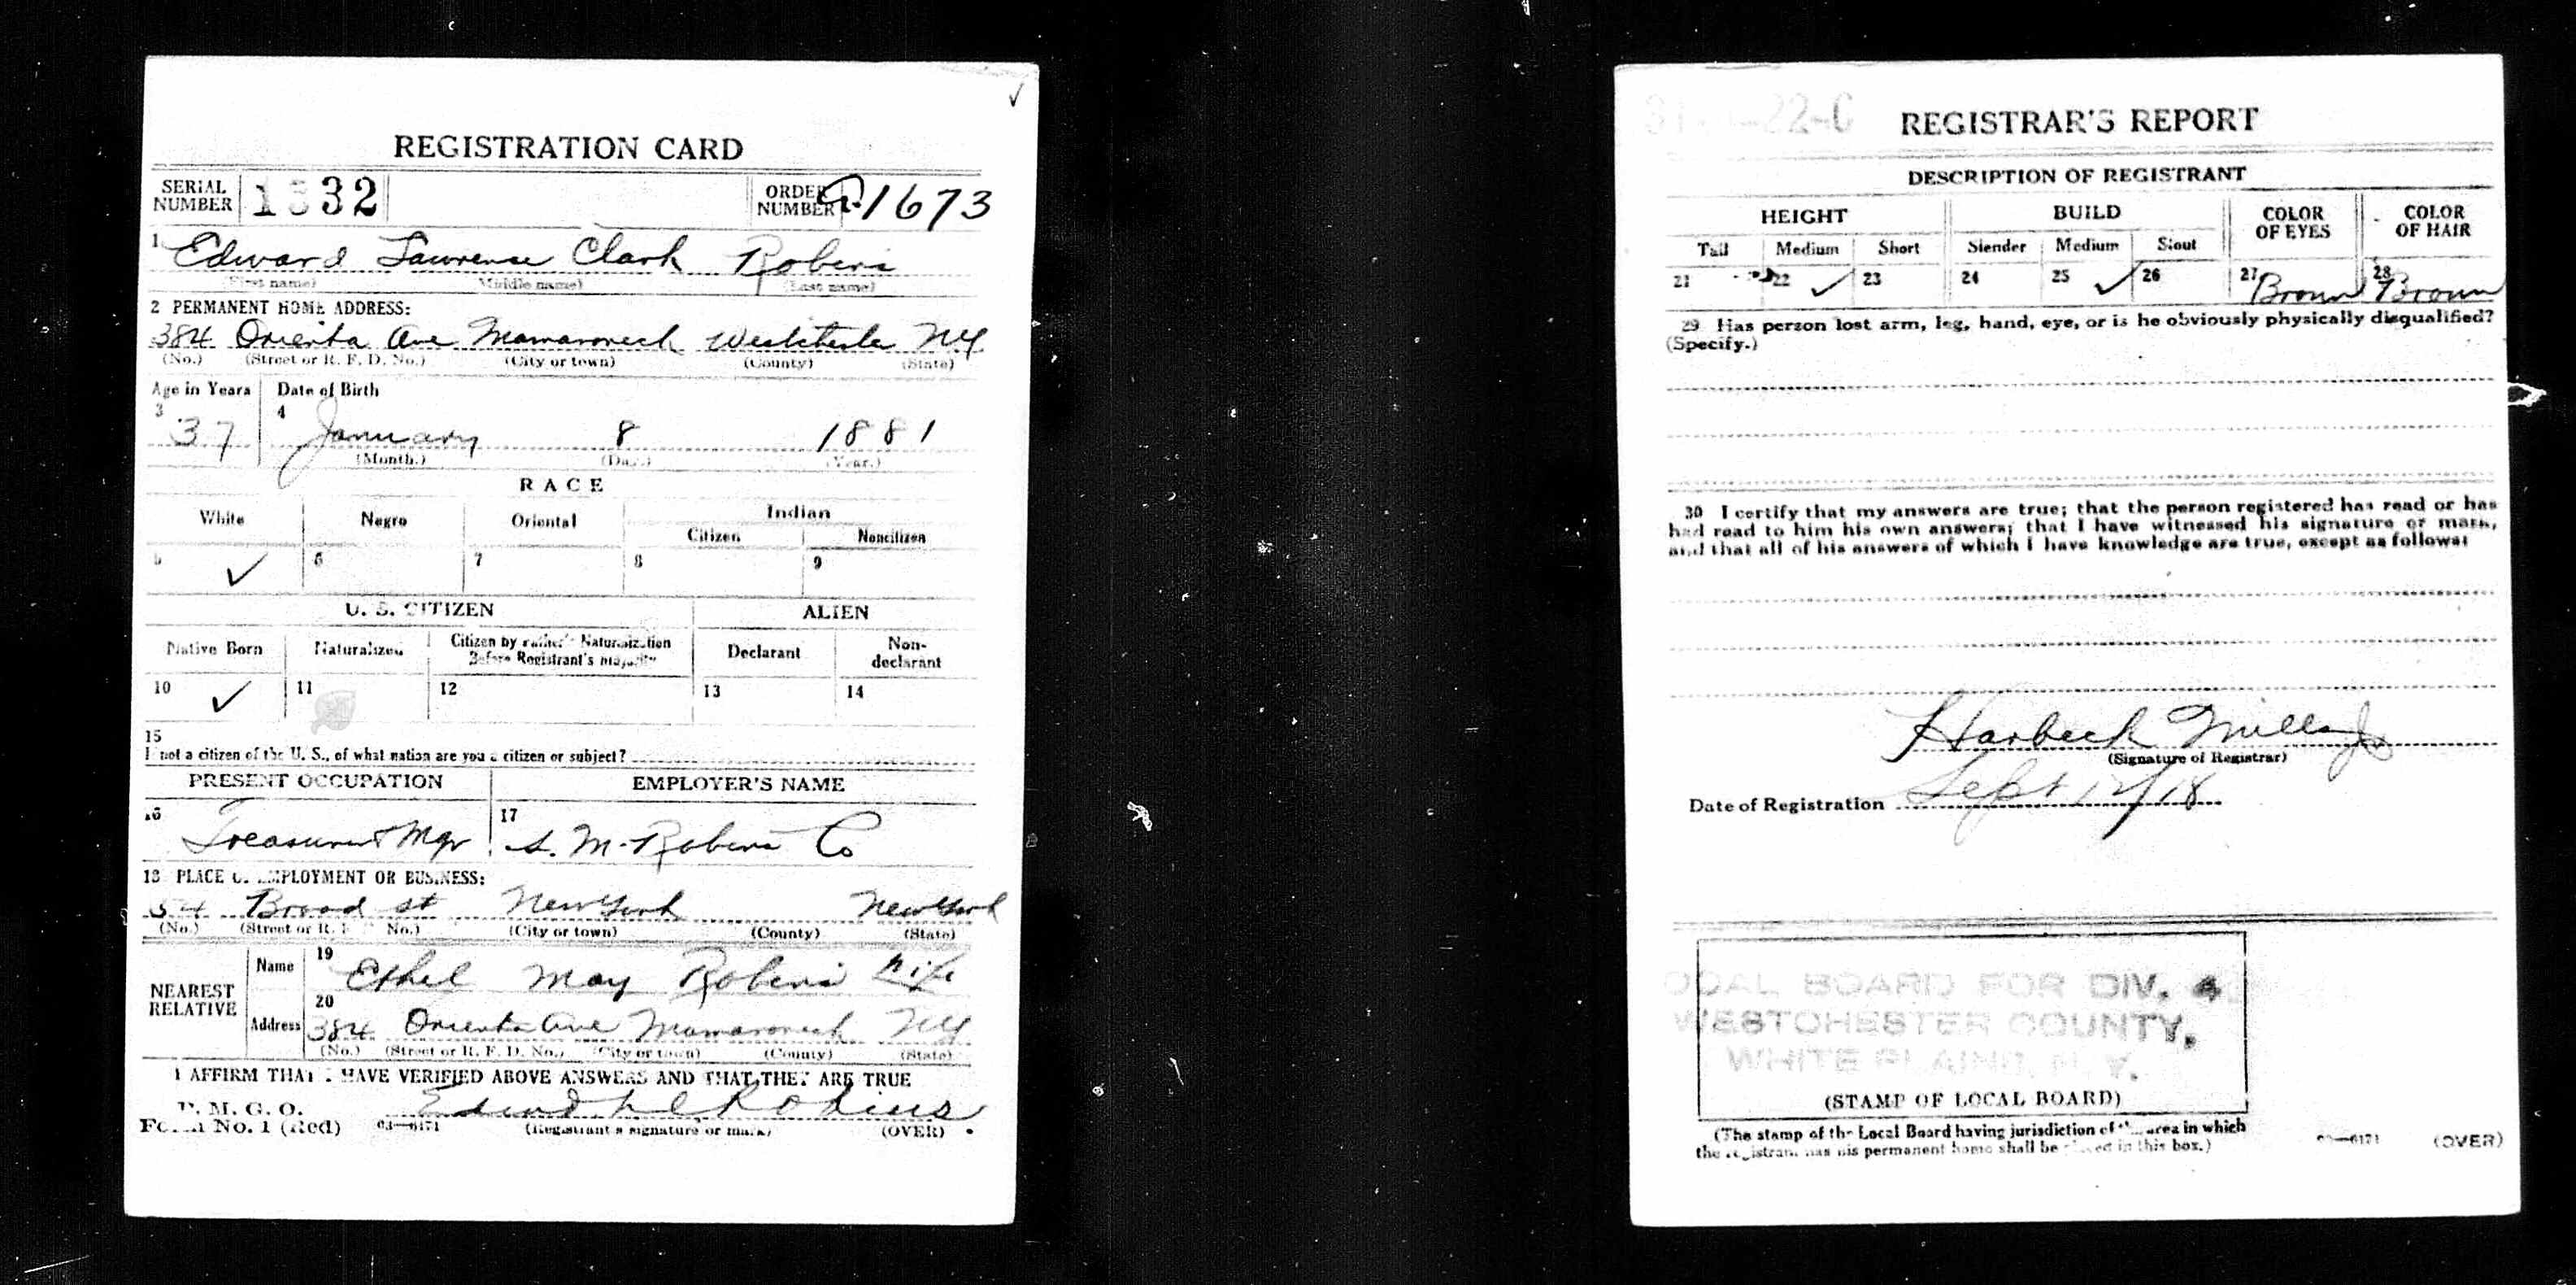 REGISTRATION CARD
SERIAL NUMBER 1332 ORDER NUMBER A1673
1 Edward Lawrence Clark Robins
(First name) (Middle name) (Last name)
2 PERMANENT HOME ADDRESS:
384 Orienta Ave Mamaroneck Westchester NY
(No.) (Street or R. F. D. No.) (City or town) (County) (State)
Age in Years Date of Birth
3 37 4 January 8 1881
(Month.) (Day.) (Year.)
RACE
White Negro Oriental Indian
Citizen Noncitizen
5 ✓ 6 7 8 9
U. S. CITIZEN ALIEN
Native Born Naturalized Citizen by Father's Naturalization Before Registrant's Majority Declarant Non-declarant
10 ✓ 11 12 13 14
15
If not a citizen of the U. S., of what nation are you a citizen or subject?
PRESENT OCCUPATION EMPLOYER'S NAME
16 Treasurer & Mgr 17 S. M. Robins Co
18 PLACE OF EMPLOYMENT OR BUSINESS:
54 Broad st New York New York
(No.) (Street or R. F. D. No.) (City or town) (County) (State)
NEAREST RELATIVE
Name 19 Ethel May Robins wife
Address 20 384 Orienta Ave Mamaroneck NY
(No.) (Street or R. F. D. No.) (City or town) (County) (State)
I AFFIRM THAT I HAVE VERIFIED ABOVE ANSWERS AND THAT THEY ARE TRUE
P. M. G. O.
Form No. 1 (Red) 03—6171 Edward L C Robins
(Registrant's signature or mark) (OVER)
22-C
REGISTRAR'S REPORT
DESCRIPTION OF REGISTRANT
HEIGHT BUILD COLOR OF EYES COLOR OF HAIR
Tall Medium Short Slender Medium Stout
21 22 ✓ 23 24 25 ✓ 26 27 Brown 28 Brown
29 Has person lost arm, leg, hand, eye, or is he obviously physically disqualified?
(Specify.)
30 I certify that my answers are true; that the person registered has read or has
had read to him his own answers; that I have witnessed his signature or mark,
and that all of his answers of which I have knowledge are true, except as follows:
Harbeck Mills Jr
(Signature of Registrar)
Date of Registration Sept 12/18
LOCAL BOARD FOR DIV. 4
WESTCHESTER COUNTY,
WHITE PLAINS, N. Y.
(STAMP OF LOCAL BOARD)
(The stamp of the Local Board having jurisdiction of the area in which
the registrant has his permanent home shall be placed in this box.)
03—6171 (OVER)